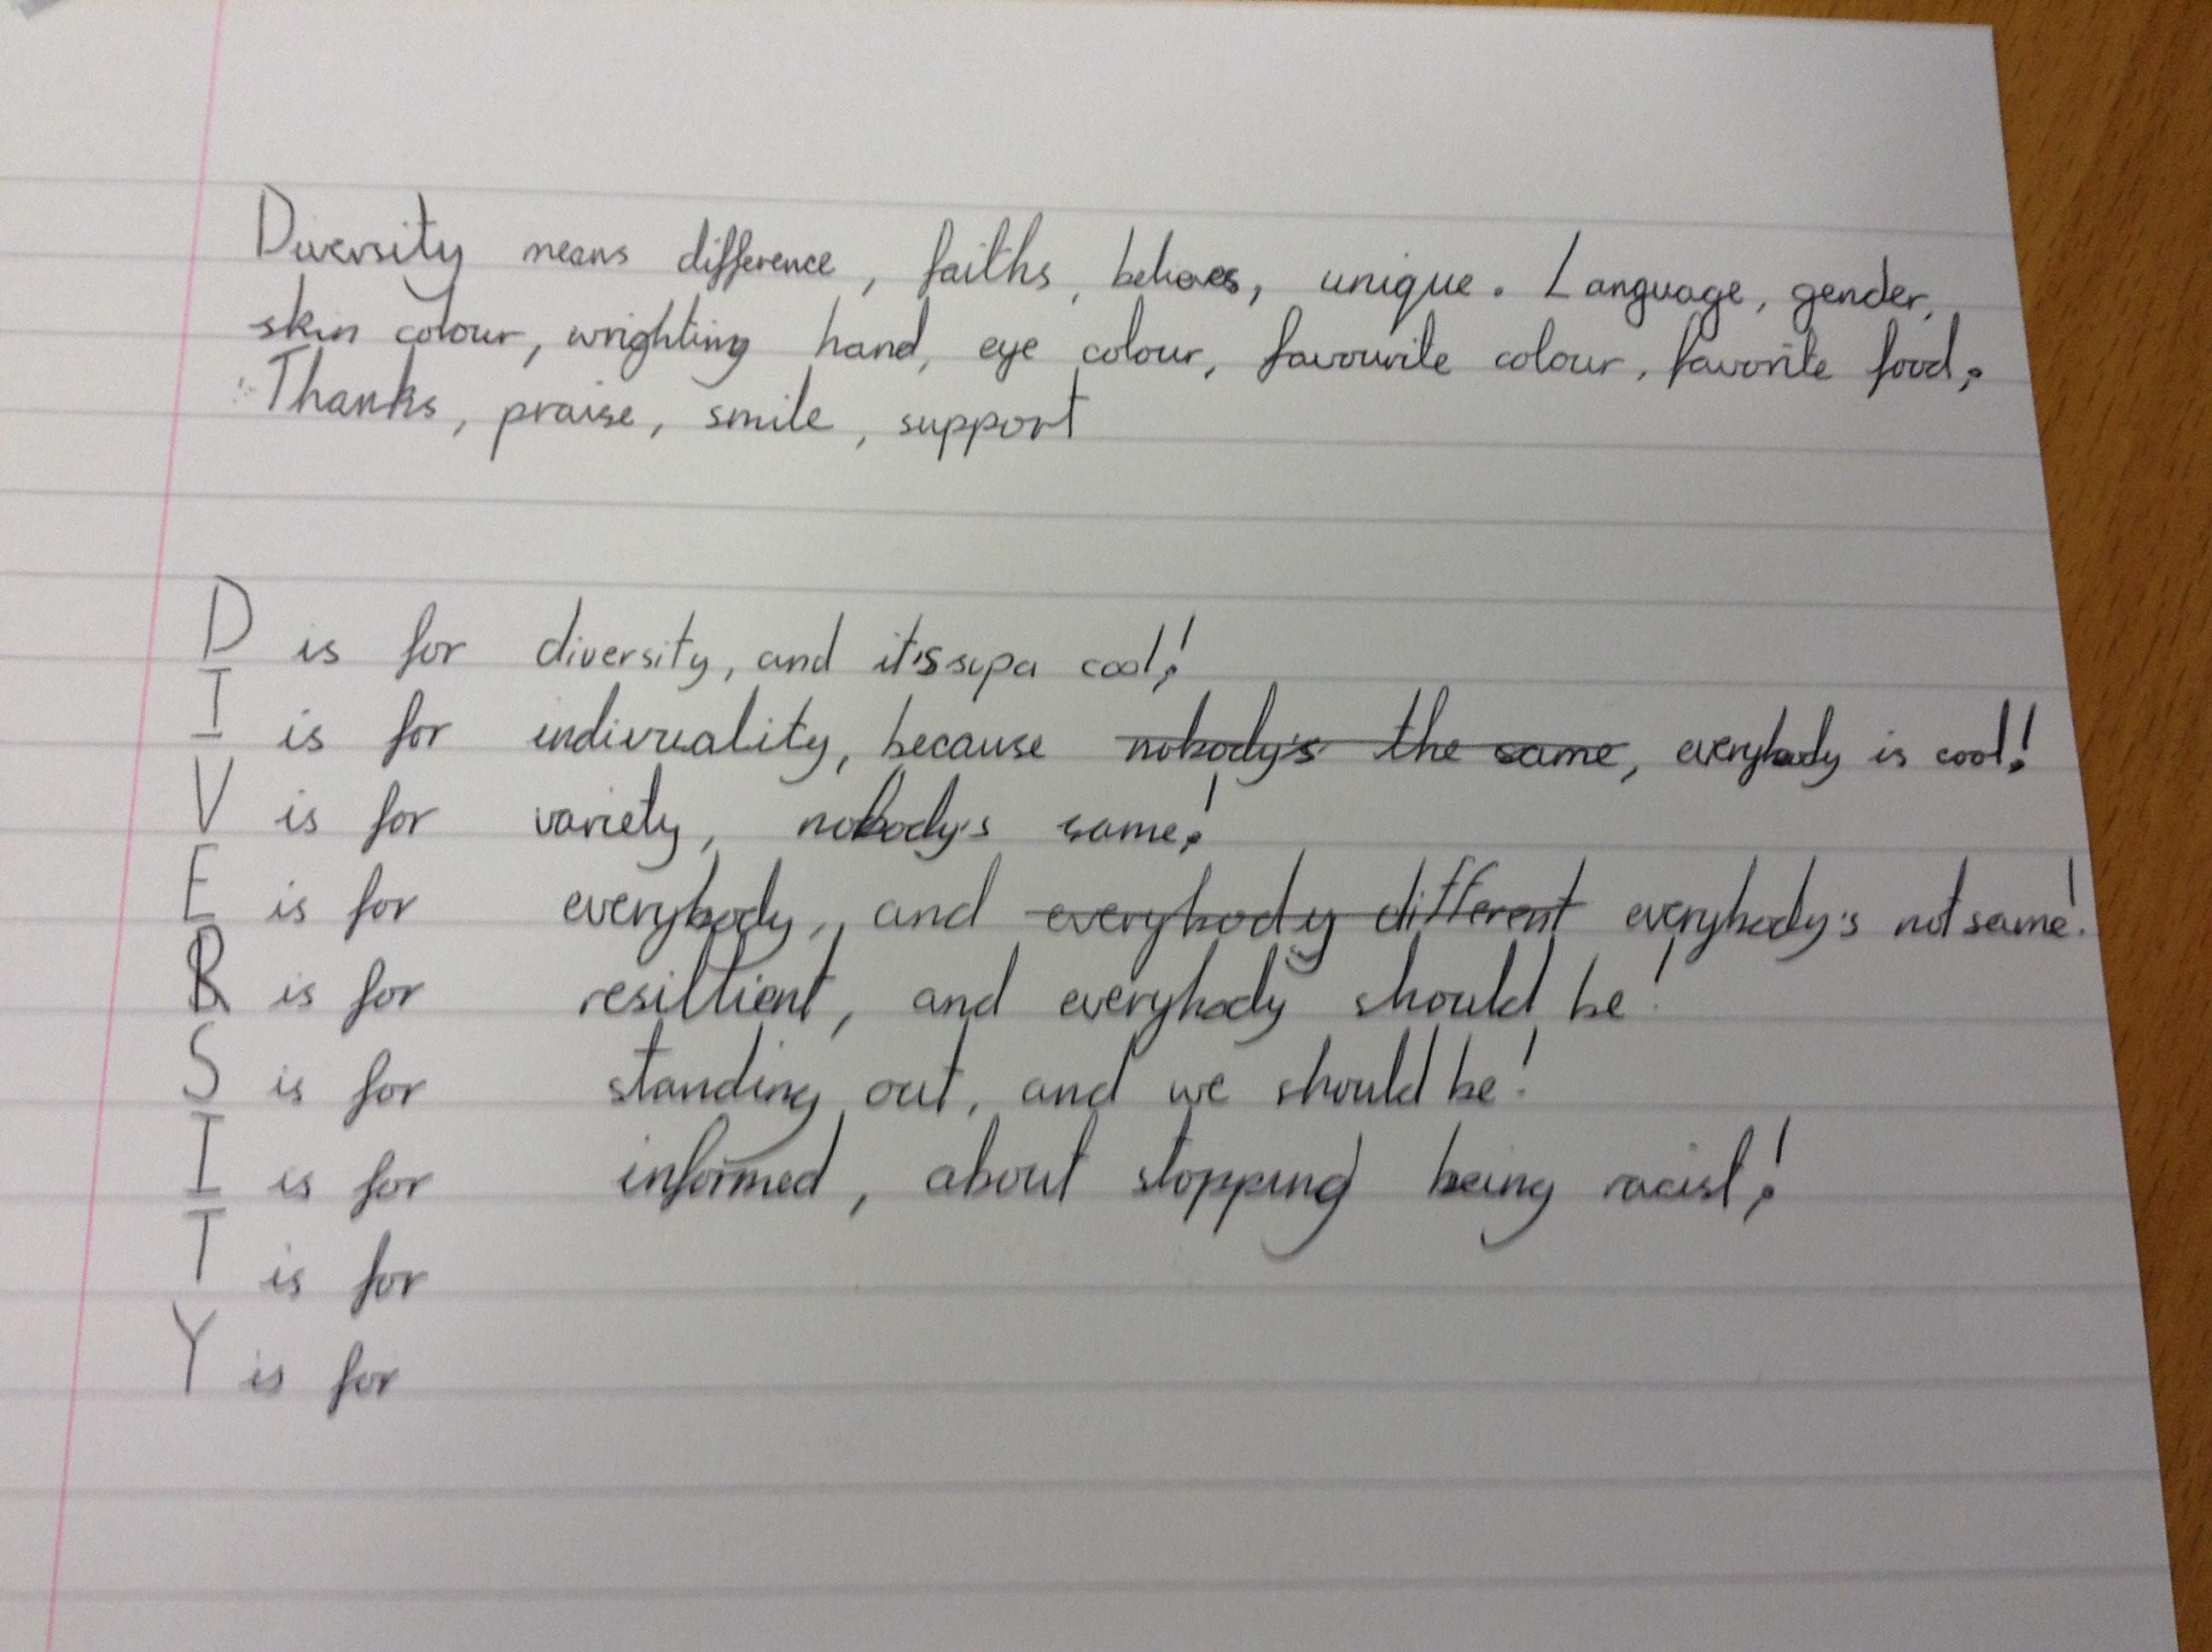 Diversity means difference, faiths, beliaves, unique. Language, gender,
skin colour, wrighting hand, eye colour, favourite colour, favorite food,
Thanks, praise, smile, support
D is for diversity, and it's supa cool!
I is for indivuality, because nobody's the same, everybody is cool!
V is for variety, nobody's same!
E is for everybody, and everybody different everybody's not same!
R is for resiltient, and everybody should be!
S is for standing out, and we should be!
I is for informed, about stopping being racist!
T is for
Y is for